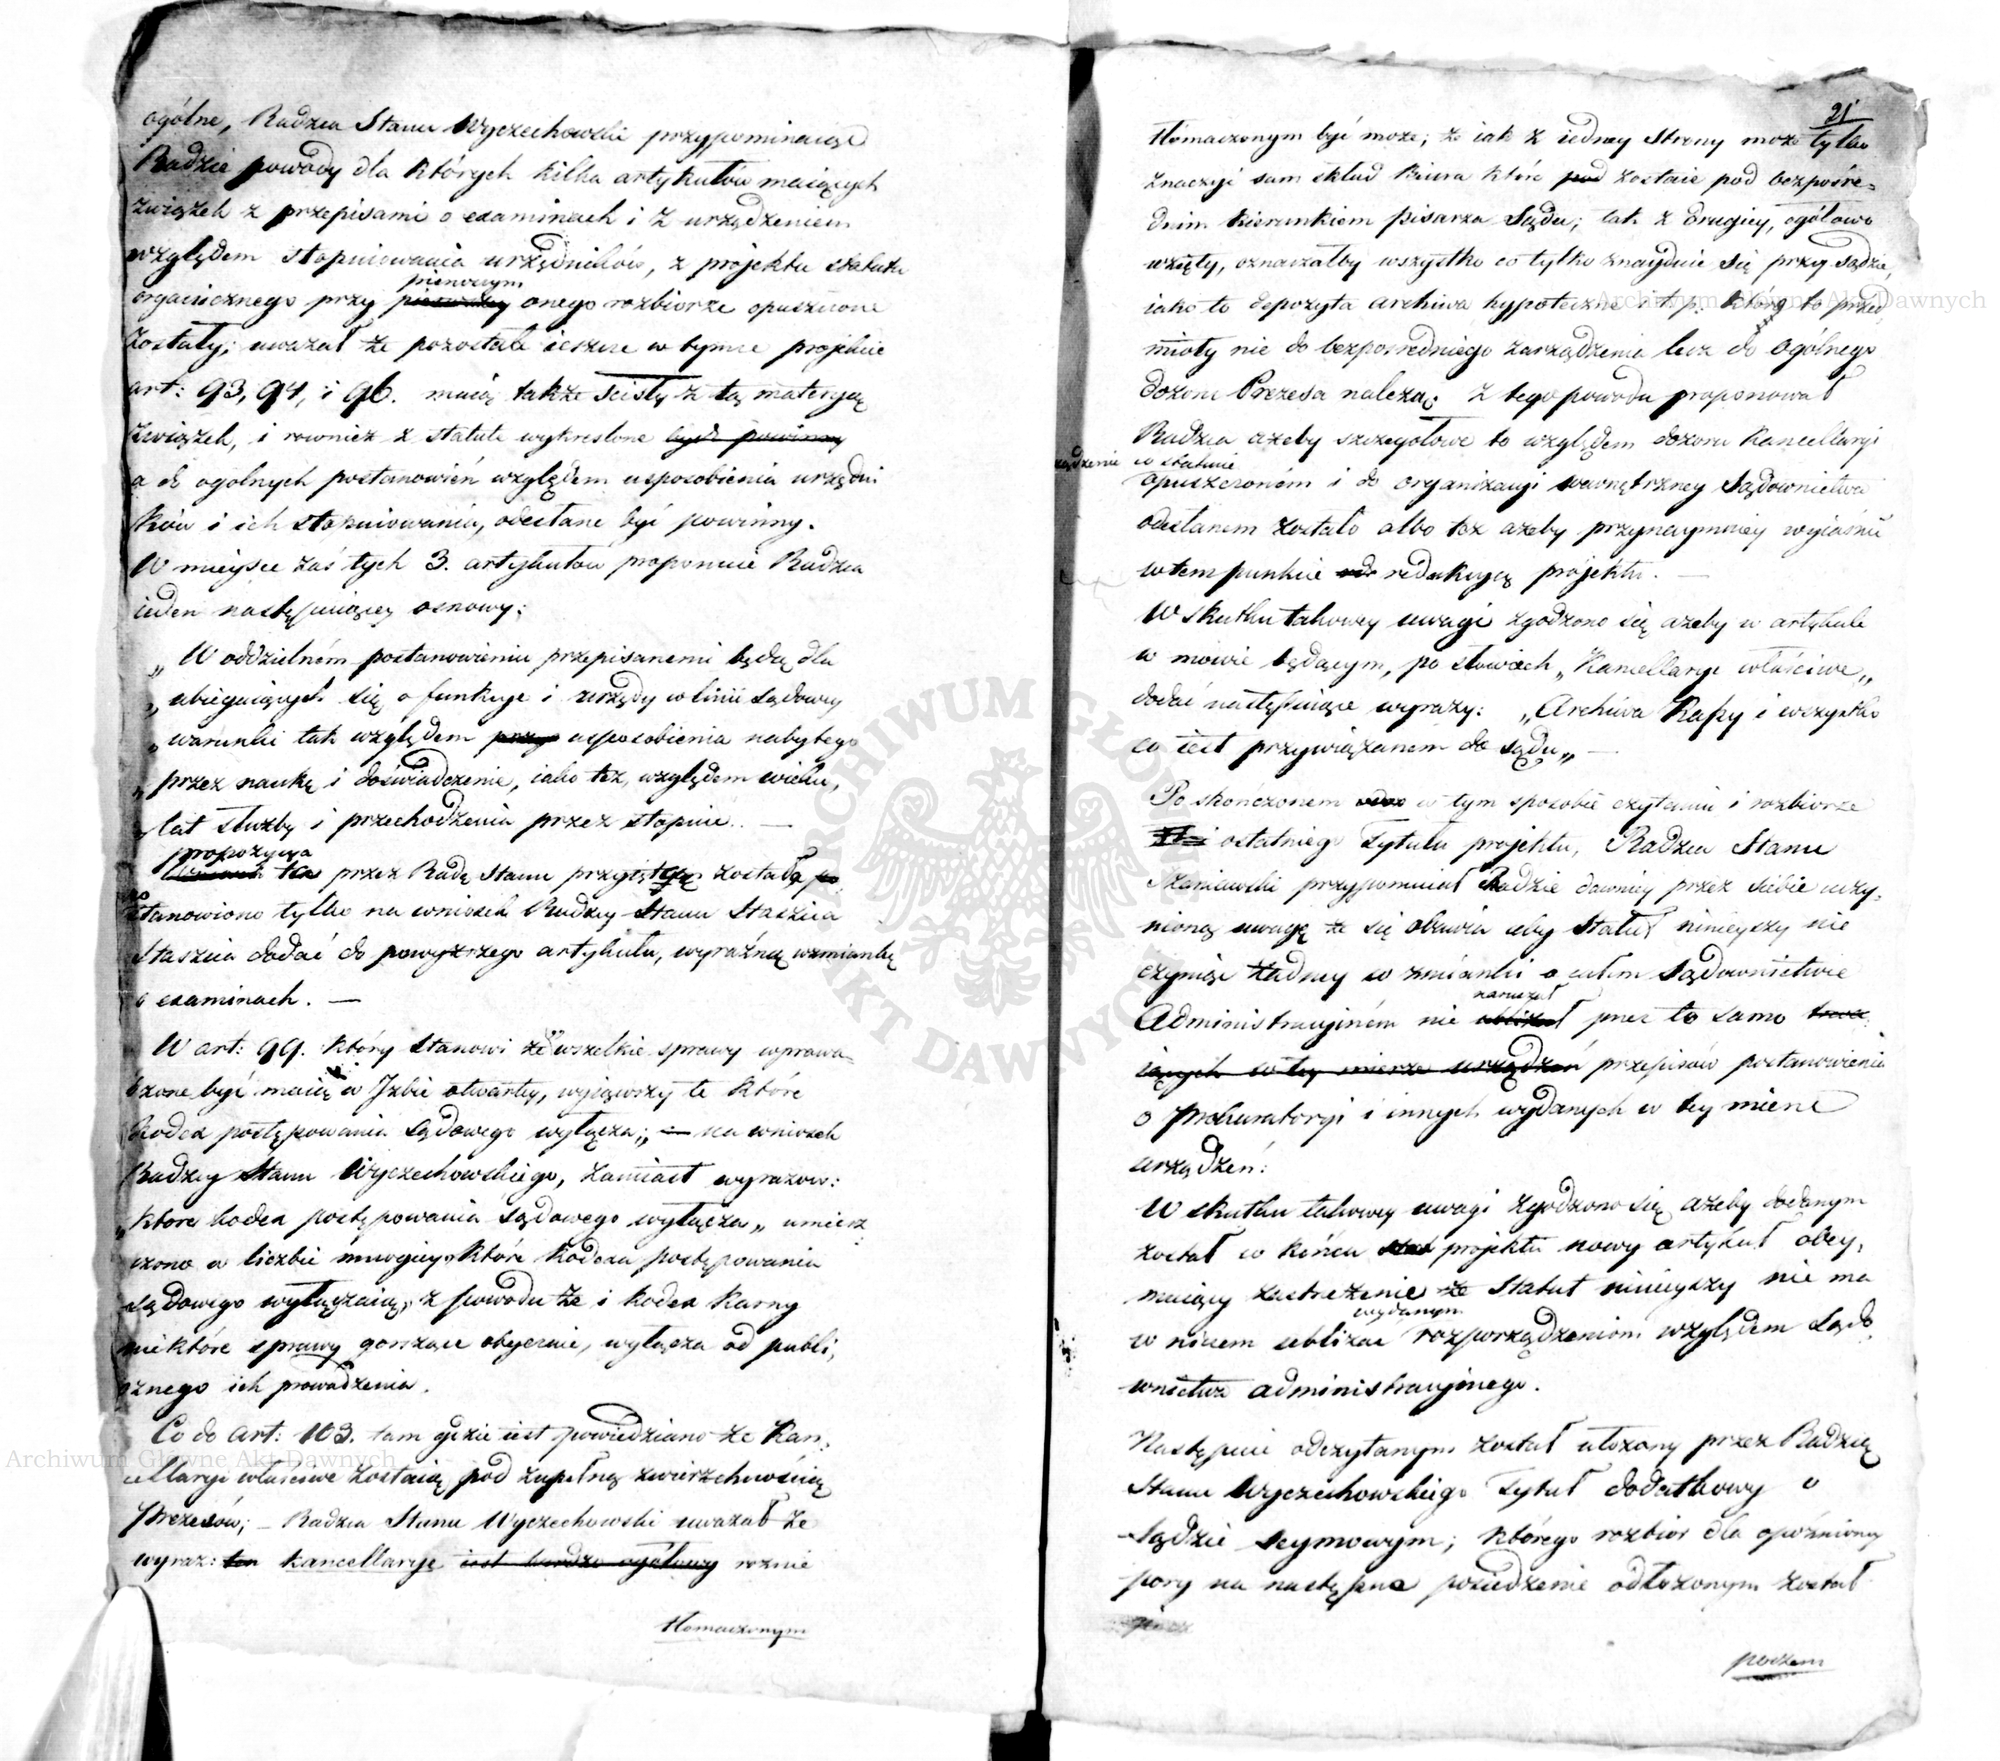 ogólne, Radzca Stanu Wyczechowski przypominaiąc
Radzie powody dla których kilka artykułów maiących
związek z przepisami o examinach i z urządzeniem
względem stopniowania urzędników, z projektu statutu
pierwszym
organicznego przy pierwszey onego rozbiorze opuszczone
zostały; uważał że pozostałe ieszcze w tymże projekcie
art: 93, 94, i 96. maią także scisły z tą materyą
związek, i rownież z statutu wykreślone bydź powinny
a do ogolnych postanowień względem usposobienia urzędni
ków i ich stopniowania, odesłane być powinny.
W mieysce zaś tych 3. artykułów proponuie Radzca
ieden następuiącey osnowy:
„W oddzielném postanowieniu przepisanemi będą dla
„ubiegaiących się o funkcye i urzędy w linii sądowey
„warunki tak względem przez usposobienia nabytego
„przez naukę i doświadczenie, iako też, względem wieku,
„lat służby i przechodzenia przez stopnie. —
propozycya
ta przez Radę Stanu przyiętą została po
stanowiono tylko na wniosek Radzcy Stanu Staszica
Staszica dodać do powyższego artykułu, wyraźną wzmiankę
o examinach. —
W art: 99. który stanowi że „wszelkie sprawy wprowa-
dzone być maią w Izbie otwartey, wyiąwszy te które
Kodex postępowania Sądowego wyłącza;„ — na wniosek
Radzcy Stanu Wyczechowskiego, zamiast wyrazów:
„które kodex postępowania Sądowego wyłącza„ umiesz
czono w liczbie mnogiey „które kodexa postępowania
sądowego wyłączaią„ z powodu że i kodex karny
niektóre sprawy gorszące obyczaie, wyłącza od publi,
cznego ich prowadzenia.
Co do art: 103. tam gdzie iest powiedziano że Kan,
cellarye właściwe zostaią pod zupełną zwierzchnością
Prezesów; — Radzca Stanu Wyczechowski uważał że
wyraz: ten kancellarye iest bardzo ogólowy roznie
tłomaczonym
21
tłomaczonym być może; że iak z iedney strony może tylko
znaczyć sam skład biura które pod zostaie pod bezpośre-
dnim kierunkiem pisarza Sądu; tak z drugiey, ogólowo
wzięty, oznaczałby wszystko co tylko znayduie się przy sądzie,
iako to depozyta archiwa hypoteczne i t. p. które to przed
mioty nie do bezposredniego zarządzenia lecz do ogólnego
dozoru Prezesa należą. Z tego powodu proponował
Radzca ażeby szczegołowe to względem dozoru Kancellaryi
w statucie
opuszczoném i do organizacyi wewnętrzney Sądownictwa
odesłanem zostało albo też ażeby przynaymniey wyiaśnić
w tem punkcie redakcyą projektu. —
W skutku takowey uwagi zgodzono się ażeby w artykule
w mowie będącym, po słowach „Kancellarye właściwe„
dodać następuiące wyrazy: „Archiwa Kassy i wszystko
co iest przywiązanem do sądu„ —
Po skonczonem w tym sposobie czytaniu i rozbiorze
ostatniego Tytułu projektu, Radzca Stanu
Szaniawski przypomniał Radzie dawniey przez siebie uczy,
nioną uwagę że się obawia aby Statut ninieyszy nie
czyniąc żadney wzmianki o całem Sądownictwie
naruszał
Administracyjném nie ubliżał przez to samo
iących w tey mierze urządzeń przepisów postanowienia
o Prokuratoryi i innych wydanych w tey mierze
urządzeń:
W skutku takowey uwagi zgodzono się ażeby dodanym
został w końcu projektu nowy artykuł obey,
muiący zastrzeżenie że Statut ninieyszy nie ma
wydanym
w niczem ubliżać rozporządzeniom względem Sądo
wnictwa administracyjnego.
Następnie odczytanym został ułożony przez Radzcę
Stanu Wyczechowskiego Tytuł dodatkowy o
Sądzie Seymowym; którego rozbiór dla opóźnioney
pory na następne posiedzenie odłożonym został
poczem